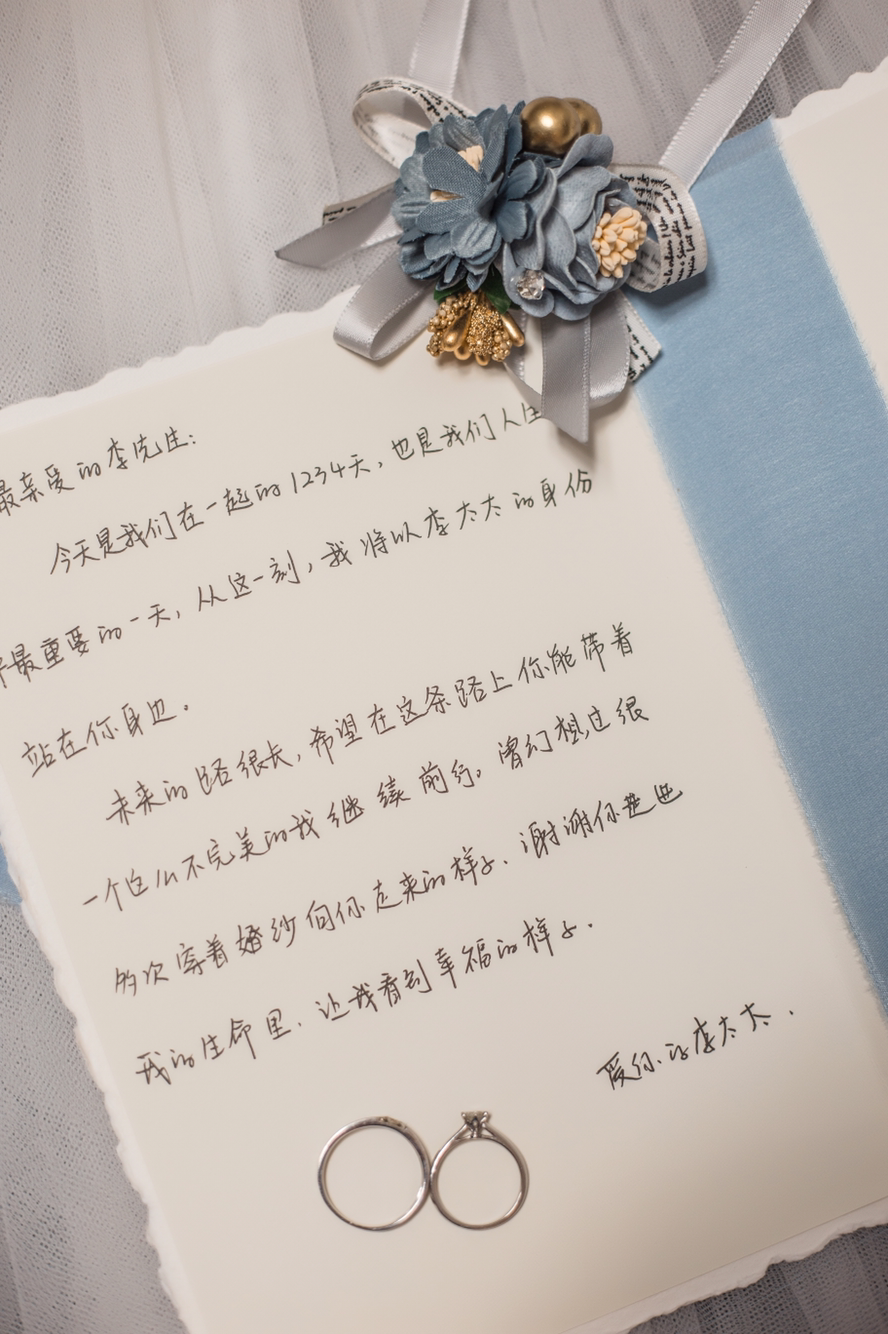 最亲爱的李先生:
今天是我们在一起的1234天,也是我们人生
最重要的一天,从这一刻,我将以李太太的身份
站在你身边。
未来的路很长,希望在这条路上你能带着
一个这么不完美的我继续前行。曾幻想过很
多次穿着婚纱向你走来的样子.谢谢你走进
我的生命里.让我看到幸福的样子.
爱你的李太太.